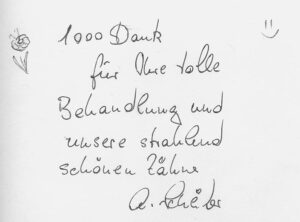 1000 Dank
für Ihre tolle
Behandlung und
unsere strahlend
schönen Zähne
A.